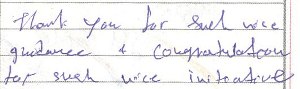 Thank you for such nice
guidance & congratulation
for such nice initiative